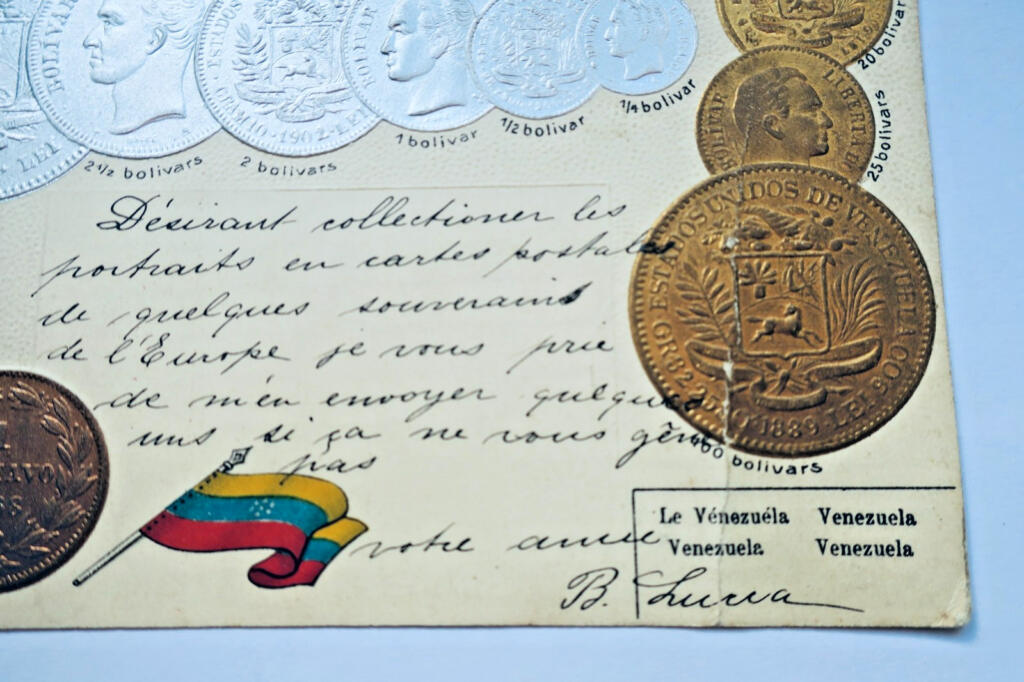 LEI
BOLIVAR
ESTADOS
GRAMO·1902·LEI
BOLIVAR
20 bolivars
2 1/2 bolivars
2 bolivars
1 bolivar
1/2 bolivar
1/4 bolivar
BOLIVAR LIBERTA
25 bolivars
ESTADOS UNIDOS DE VENEZUELA
1889·LEI 900
100 bolivars
Désirant collectioner les
portraits en cartes postales
de quelques souverains
de l'Europe je vous prie
de m'en envoyer quelques
uns si ça ne vous gêne
pas
votre amie
B. Lucca
Le Vénézuéla Venezuela
Venezuela Venezuela